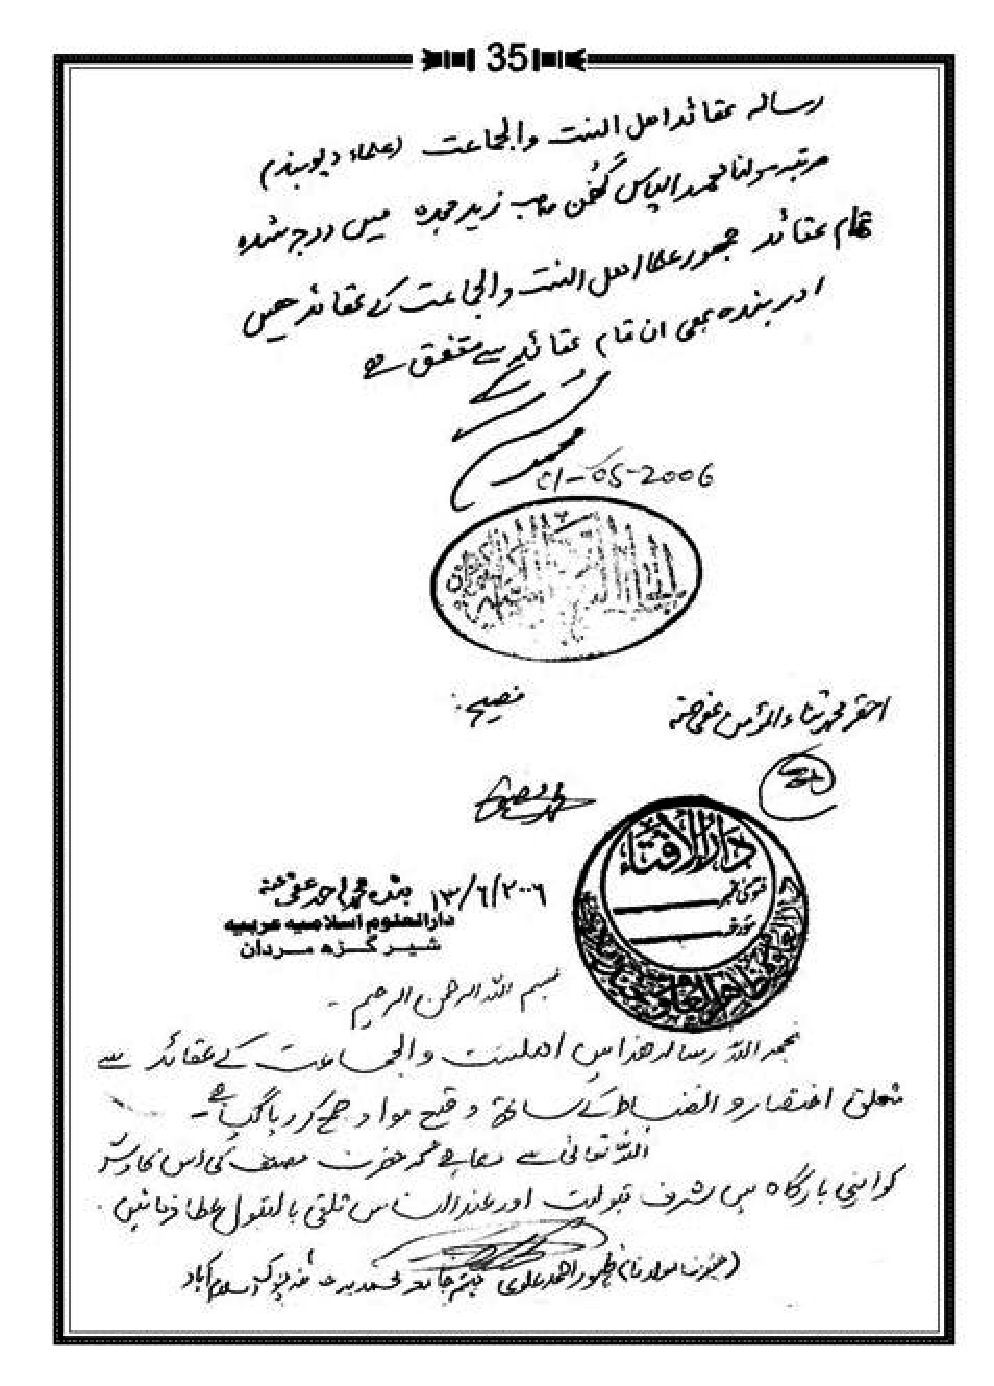 35
رسالہ عقائد اھل السنت والجماعت (علماء دیوبند)
مرتبہ مولانا محمد الیاس گھُمن صاحب زید مجدہ میں درج شدہ
تمام عقائد جمہور علماء اھل السنت والجماعت کے عقائد ھیں
اور بندہ بھی ان تمام عقائد سے متفق ہے
محمد
01-05-2006
احقر محمد ثناء المؤمن عفی عنہ
دار الافتاء
فتویٰ نمبر
مورخہ
۱۳/۶/۲۰۰۶ بندہ محمد احمد عفی عنہ
دارالعلوم اسلامیہ عربیہ
شیر گڑھ مردان
بسم اللہ الرحمن الرحیم ۔
بحمد اللہ رسالہ ھذا میں اھلسنت والجماعت کے عقائد سے
متعلق اختصار و انضباط کے ساتھ وقیع مواد جمع کر دیا گیا ہے ۔
اللہ تعالیٰ سے دعا ہے کہ حضرت مصنف کی اس کاوش
کو اپنی بارگاہ میں شرف قبولیت اور عند الناس تلقی بالقبول عطا فرمائیں ۔
(حضرت مولانا) ظہور احمد علوی مہتمم جامعہ محمدیہ اسلام آباد